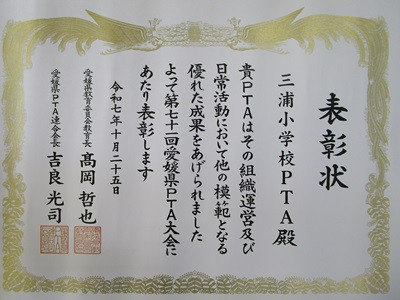 表彰状
三浦小学校PTA殿
貴PTAはその組織運営及び
日常活動において他の模範となる
優れた成果をあげられました
よって第七十一回愛媛県PTA大会に
あたり表彰します
令和七年十月二十五日
愛媛県教育委員会教育長 髙岡哲也
愛媛県PTA連合会会長 吉良光司